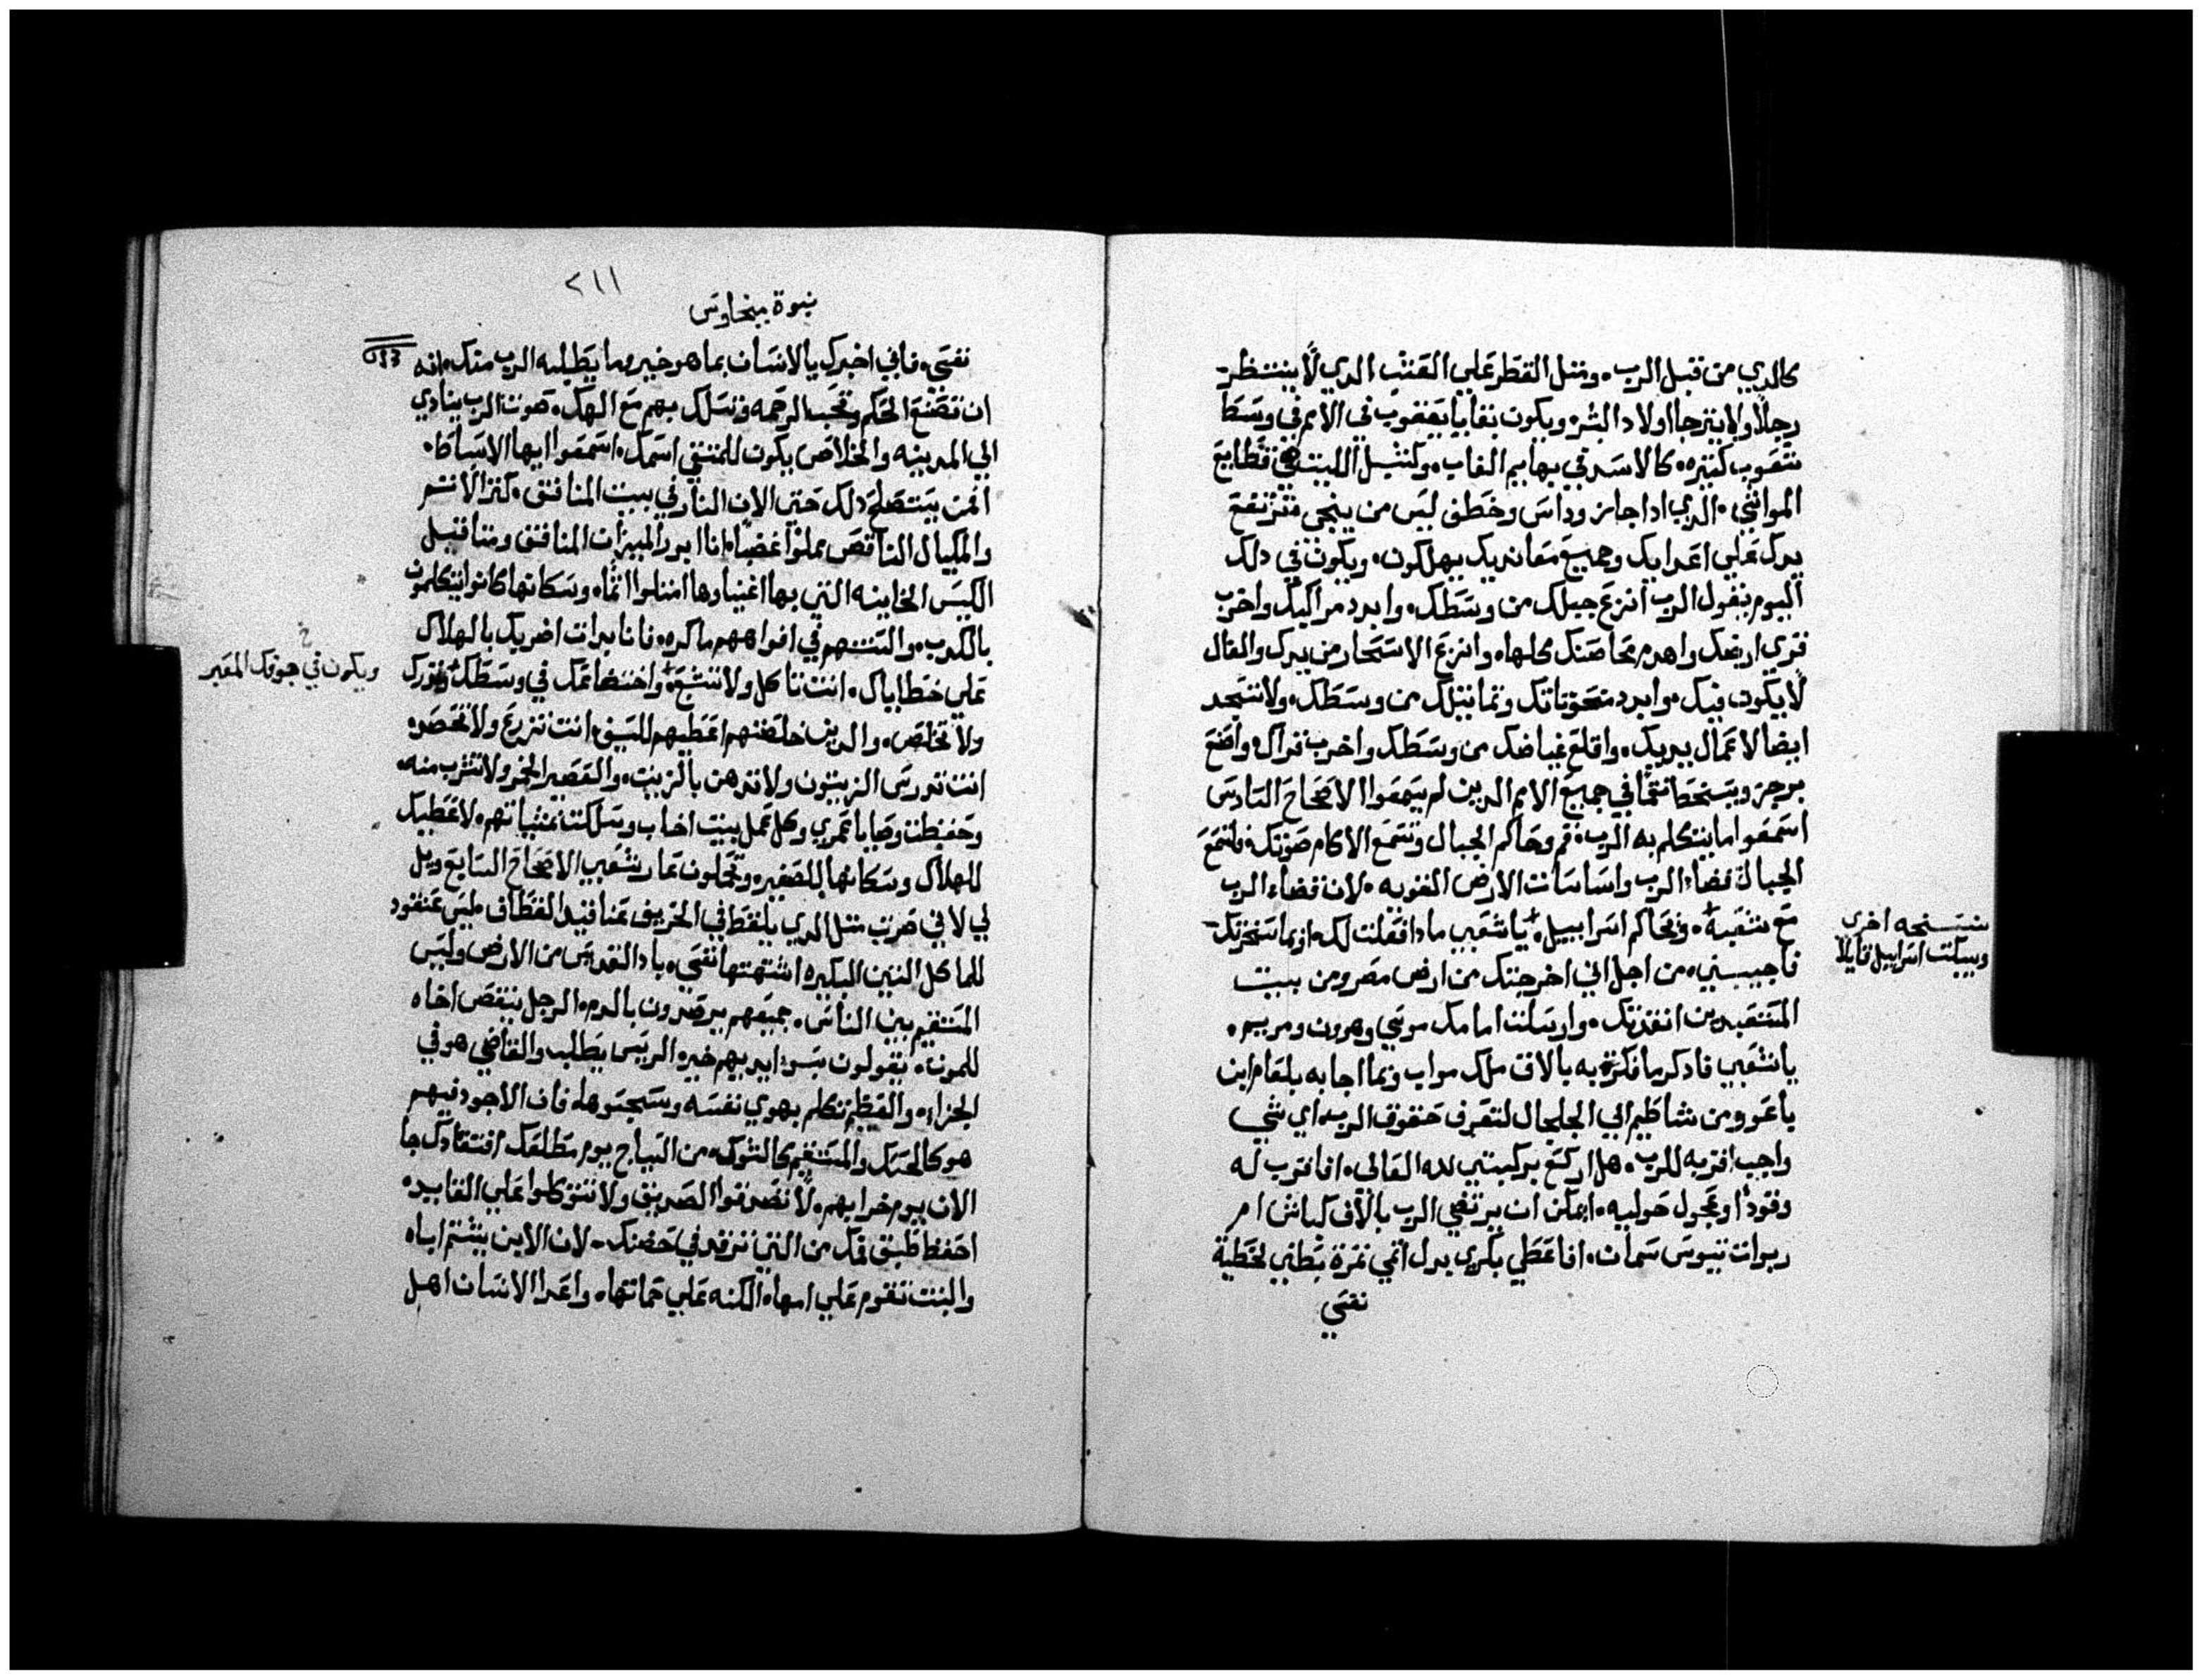 كالدي من قبل الرب. ومثل القطر علي العشب الدي لا ينتظر
رجلاً ولا يترجا اولاد البشر ويكون بقايا يعقوب في الامم في وسط
شعوب كتيره. كالاسد في بهايم الغاب. وكشبل الليث في قطايع
المواشي. الدي ادا جاز وداس وخطف ليس من ينجي فترتفع
يدك علي اعدايك وجميع معانديك يهلكون. ويكون في دلك
اليوم يقول الرب انزع خيلك من وسطك. وابدد مراكبك واخرب
قري ارضك واهدم محاصنك كلها. وانزع الاسحار من يدك والفال
لا يكون فيك. وابدد منحوتاتك وتماثيلك من وسطك. ولا تسجد
ايضا لاعمال يديك. واقلع غياضك من وسطك واخرب قراك. واصنع
برجز وبسخط نقما في جميع الامم الدين لم يسمعوا الاصحاح السادس
اسمعوا ما يتكلم به الرب. قم وحاكم الجبال وتسمع الاكام صوتك. فلتسمع
الجبال قضاء الرب واساسات الارض القويه. لان قضاء الرب
مع شعبه + وتحاكم اسراييل. + يا شعبي مادا فعلت لك. او بما اضجرتك
فاجيبيني. من اجل اني اخرجتك من ارض مصر ومن بيت
المتعبدين انقدتك. وارسلت امامك موسي وهرون ومريم.
يا شعبي فادكر ما فكر به بالاق ملك مواب وبما اجابه بلعام ابن
باعور من شاطيم الي الجلجال لتعرف حقوق الرب. اي شي
واجب اقربه للرب. هل اركع بركبتي لله العالي. افاقرب له
وقودا وعجول حوليه. ايمكن ان يرتضي الرب بالاف كباش ام
ربوات تيوس سمان. افاعطي بكري بدل اثمي ثمرة بطني لخطية
نفسي
نسخه اخري
ويبكت اسراييل قايلا
٢١١
نبوة ميخاوس
نفسي. فاني اخبرك يا الانسان بما هو خير وما يطلبه الرب منك. انه
ان تصنع الحكم وتحب الرحمه وتسلك بهم مع الهك. صوت الرب ينادي
الي المدينه والخلاص يكون للمتقي اسمك. اسمعوا ايها الاسباط.
دلك حتي الان النار في بيت المنافق. كنز الاثم
والمكيال الناقص مملوا غضباً. انا ابرر الميزان المنافق ومثاقيل
الكيس الخاينه التي بها اغنياوها امتلوا اثما. وسكانها كانوا يتكلمون
بالكدب. والسنتهم في افواههم ماكره. فانا بدات اضربك بالهلاك
علي خطاياك. انت تاكل ولا تشبع. + واختضاعك في وسطك +
ولا تخلص. والدين خلصتهم اعطيهم للسيف. انت تزرع ولا تحصد.
انت تدوس الزيتون ولا تدهن بالزيت. والعصير الخمر ولا تشرب منه.
وحفظت وصايا عمري وكل عمل بيت اخاب وسلكت بمشياتهم. لاعطيك
للهلاك وسكانها للصفير. وتحملون عار شعبي الاصحاح السابع ويل
لي لاني صرت مثل الدي يلقط في الخريف عنا قيد القطاف. ليس عنقود
للماكل التين البكيره اشتهتها نفسي. باد القديس من الارض وليس
المستقيم بين الناس. جميعهم يرصدون بالدم. الرجل ينقص اخاه
للموت. يقولون سوء ايديهم خير. الريس يطلب والقاضي هو في
الجزاء. والعظيم تكلم بهوي نفسه وسجسوها. فان الاجود فيهم
هو كالحسك والمستقيم كالشوك من السياج يوم مطلعك افتقادك جا
الان يوم خرابهم. لا تصدقوا الصديق ولا تتوكلوا علي القايد.
احفظ طبق فمك من التي ترقد في حضنك. لان الابن يشتم اباه
والبنت تقوم علي امها. الكنه علي حماتها. واعدا الانسان اهل
خ
ويكون في جوفك المعبر